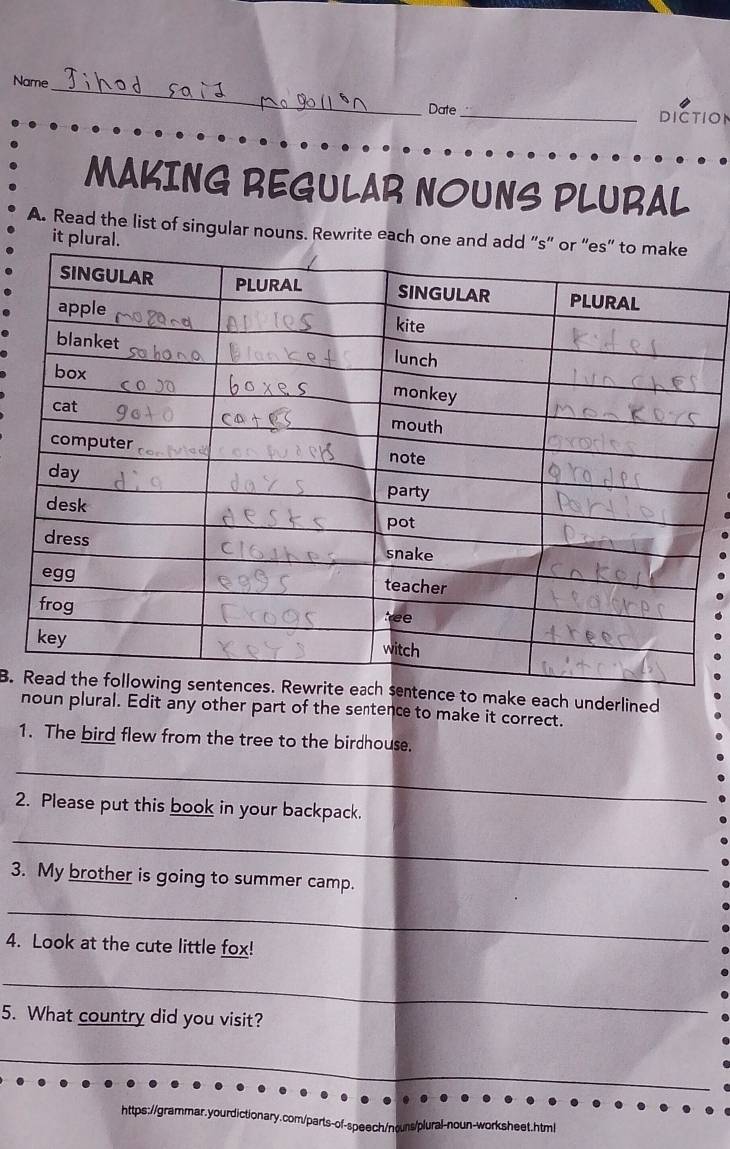 Name Jihad said mogollon
Date
DICTION
MAKING REGULAR NOUNS PLURAL
A. Read the list of singular nouns. Rewrite each one and add "s" or "es" to make
it plural.
SINGULAR PLURAL SINGULAR PLURAL
apple mozana Apples kite kites
blanket sabana Blankets lunch lunches
box cojo boxes monkey monkeys
cat gato cates mouth grodes
computer computers note grades
day dia days party parties
desk desks pot pons
dress clothes snake snkes
egg eggs teacher
frog Frogs tree trees
key keys witch
B. Read the following sentences. Rewrite each sentence to make each underlined
noun plural. Edit any other part of the sentence to make it correct.
1. The bird flew from the tree to the birdhouse.
2. Please put this book in your backpack.
3. My brother is going to summer camp.
4. Look at the cute little fox!
5. What country did you visit?
https://grammar.yourdictionary.com/parts-of-speech/nouns/plural-noun-worksheet.html